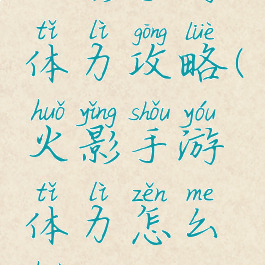 tǐ lì gōng lüè
体力攻略(
huǒ yǐng shǒu yóu
火影手游
tǐ lì zěn me
体力怎么